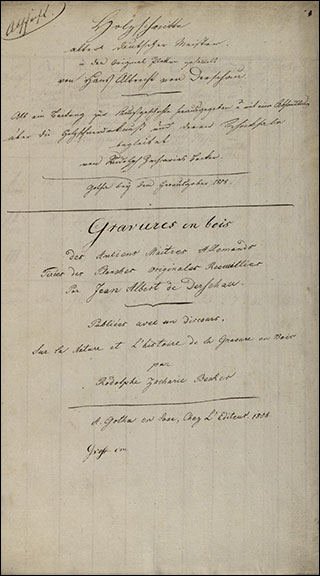 Abschrift.
Holzschnitte
alter deutscher Meister
in den Original Platten gesammelt
von Hans Albrecht von Derschau.
Als ein Beitrag zur Kunstgeschichte herausgegeben u. mit einer Abhandlung
über die Holzschneidekunst und deren Schicksale
begleitet
von Rudolph Zacharias Becker
Gotha bey dem Herausgeber 1808.
Gravures en bois
des Anciens Maitres Allemands
Tirées des Planches originales Recueillies
Par Jean Albert de Derschau
Publiées avec un discours,
Sur la Nature et L'histoire de la Gravure en Bois
par
Rodolphe Zacharie Becker
A. Gotha en Saxe, Chez L'Editeur 1808